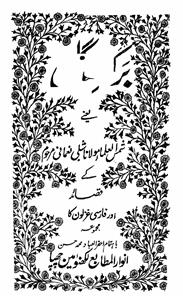 برگ گل
یعنے
شمس العلما مولانا شبلی نعمانی مرحوم
کے
قصائد
اور فارسی غزلون کا
مجموعہ
باہتمام احقر العباد محمد حسن
انوار المطابع لکھنؤ مین چھپا